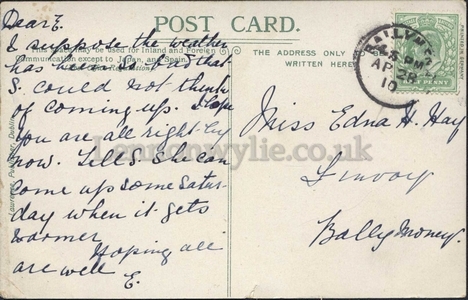 POST CARD.
may be used for Inland and Foreign
Communication except to Japan, and Spain,
THE ADDRESS ONLY TO BE
WRITTEN HERE
Dear E.
I suppose the weather
has been so bad that
S. could not think
of coming up. I hope
you are all right by
now. Tell S. she can
come up some Satur-
day when it gets
warmer
Hoping all
are well E.
Lawrence, Publisher, Dublin
AP 28
10
HALFPENNY
Miss Edna H. Hay
Finvoy
Ballymoney.
Lennonwylie.co.uk